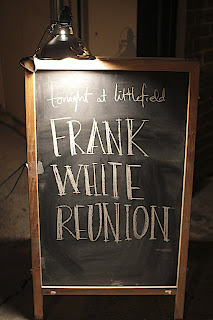 tonight at littlefield
FRANK
WHITE
REUNION